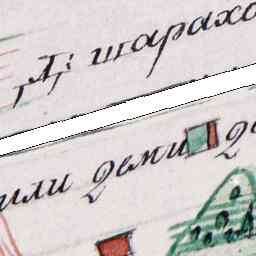 Д: шарахо
или деми де